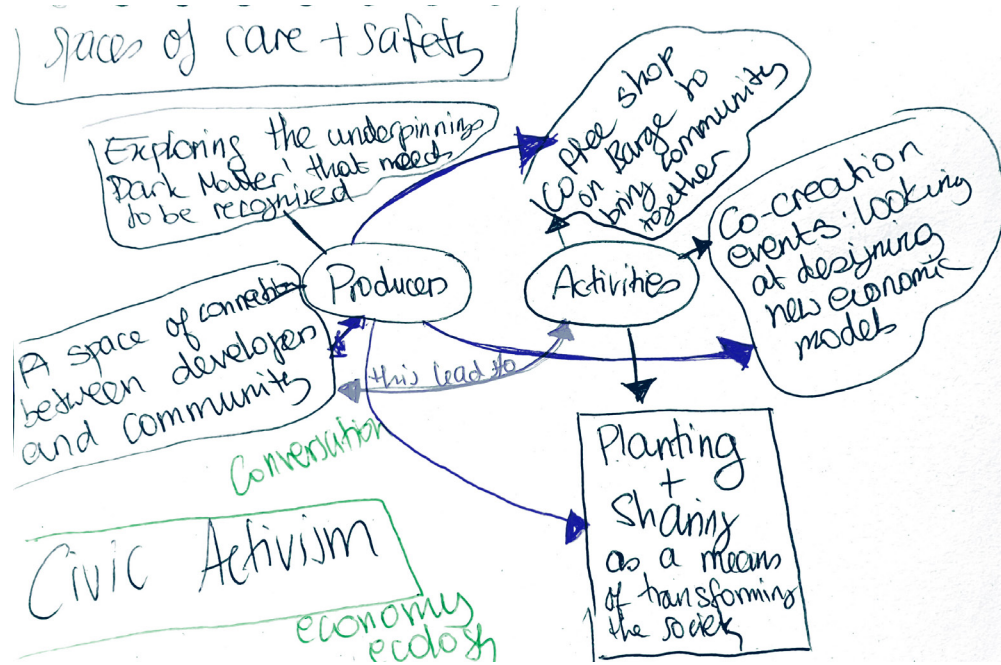 spaces of care + safety
Exploring the underpinning
Dark Matter' that needs
to be recognised
Coffee shop
on Barge to
bring community
together
Co-creation
events: looking
at designing
new economic
models
Producers
Activities
A space of connection
between developers
and community
this lead to
Conversation
Planting
+
Sharing
as a means
of transforming
the society
Civic Activism
economy
ecology